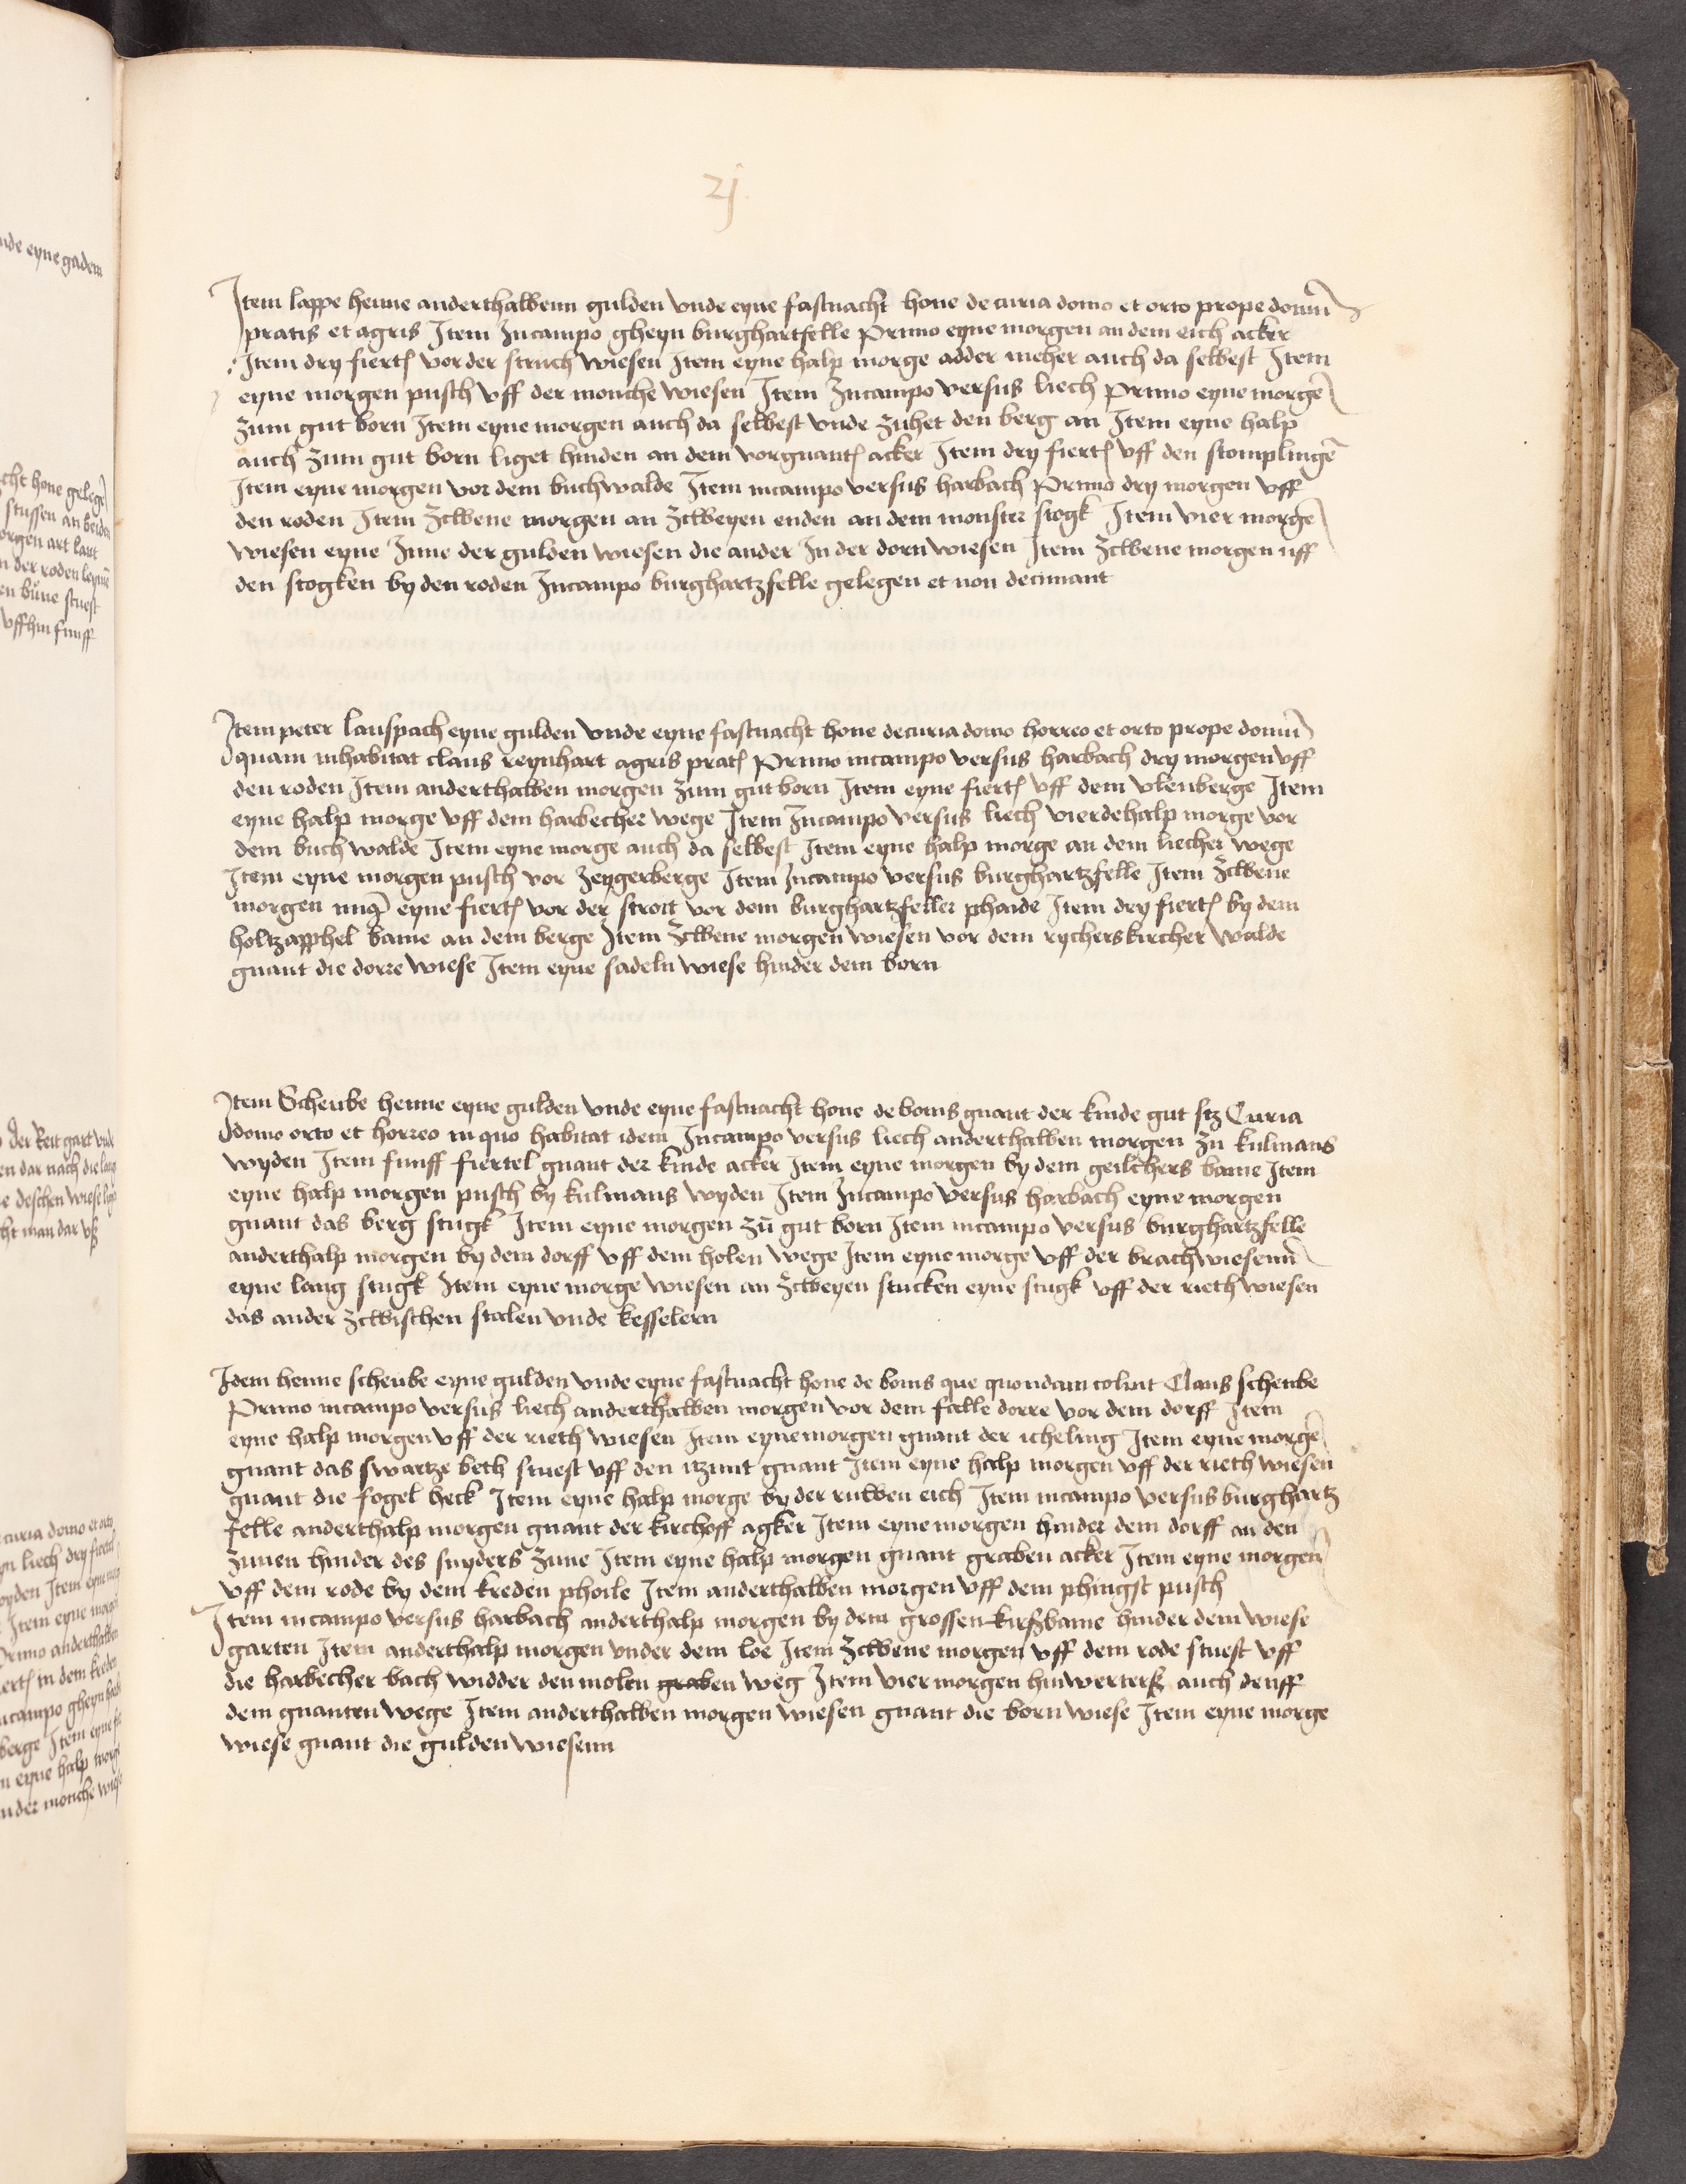 21
Item lappe henne anderthalbenn gulden vnde eyne fastnacht hone de curia domo et orto prope domũ
pratis et agris Item Incampo gheyn burghartfelle Primo eyne morgen an dem eich acker
Item dry fiertl vor der struch wiesen Item eyne halp morge adder meher auch da selbest Item
eyne morgen pusch vff der monche wiesen Item Incampo versus liech Primo eyne morgē
zum gut born Item eyne morgen auch da selbest vnde zuhet den berg an Item eyne halp
auch zum gut born liget hinden an dem vorgnantl acker Item dry fiertl vff den stomplingē
Item eyne morgen vor dem buchwalde Item incampo versus harbach Primo dry morgen vff
den roden Item zcwene morgen an zcweyen enden an dem monster stogk Item vier morgē
wiesen eyne Inne der gulden wiesen die ander In der dorn wiesen Item zcwene morgen uff
den stogken by den roden Incampo burghartzfelle gelegen et non decimant
Item peter lanspach eyne gulden vnde eyne fastnacht hone decuria domo horreo et orto prope domũ
quam inhabitat claus reynhart agris pratl Primo incampo versus harbach dry morgen vff
den roden Item anderthalben morgen zum gut born Item eyne fiertl vff dem vlenberge Item
eyne halp morge vff dem harbecher wege Item Incampo versus liech vierdehalp morge vor
dem buch walde Item eyne morge auch da selbest Item eyne halp morge an dem liecher wege
Item eyne morgen pusch vor zeygerberge Item Incampo versus burghartzfelle Item zcwene
morgen eyne fiertl vor der stroit vor dem burghartzfeller phaide Item dry fiertl by dem
holtzapphel bame an dem berge Item zcwene morgen wiesen vor dem rycherskircher walde
gnant die dorre wiese Item eyne sadeln wiese hinder dem born
Item Scheube henne eyne gulden vnde eyne fastnacht hone de bonis gnant der kinde gut Curia
domo orto et horreo in quo habitat idem Incampo versus liech anderthalben morgen zu kulmans
wyden Item funff fiertel gnant der kinde acker Item eyne morgen by dem geilchers bame Item
eyne halp morgen pusch by kulmans wyden Item Incampo versus horbach eyne morgen
gnant das berg stugk Item eyne morgen zū gut born Item incampo versus burghartzfelle
anderthalp morgen by dem dorff vff dem holen wege Item eyne morge vff der brachwiesenn
eyne lang stugk Item eyne morge wiesen an zcweyen stucken eyne stugk vff der rieth wiesen
das ander zcwischen stalen vnde kesselern
Idem henne scheube eyne gulden vnde eyne fastnacht hone de bonis que quondam coluit Claus scheube
Primo incampo versus liech anderthalben morgen vor dem falle dorre vor dem dorff Item
eyne halp morgen vff der rieth wiesen Item eyne morgen gnant der icheling Item eyne morgē
gnant das swartze beth stuest vff den itzunt gnant Item eyne halp morgen vff der rieth wiesen
gnant die fogel heck Item eyne halp morge by der ruwen eich Item incampo versus burghartz
felle anderthalp morgen gnant der kirchoff agker Item eyne morgen hinder dem dorff an den
zunen hinder des snyders zune Item eyne halp morgen gnant graben acker Item eyne morgen
vff dem rode by dem kreden phoile Item anderthalben morgen vff dem phingst pusch
Item incampo versus harbach anderthalp morgen by dem grossen kirßbame hinder dem wiese
garten Item anderthalp morgen vnder dem loe Item zcwene morgen vff dem rode stuest vff
die harbecher bach widder den molen graben weg Item vier morgen hinwerterß auch denff
dem gnanten wege Item anderthalben morgen wiesen gnant die born wiese Item eyne morge
wiese gnant die gulden wiesenn